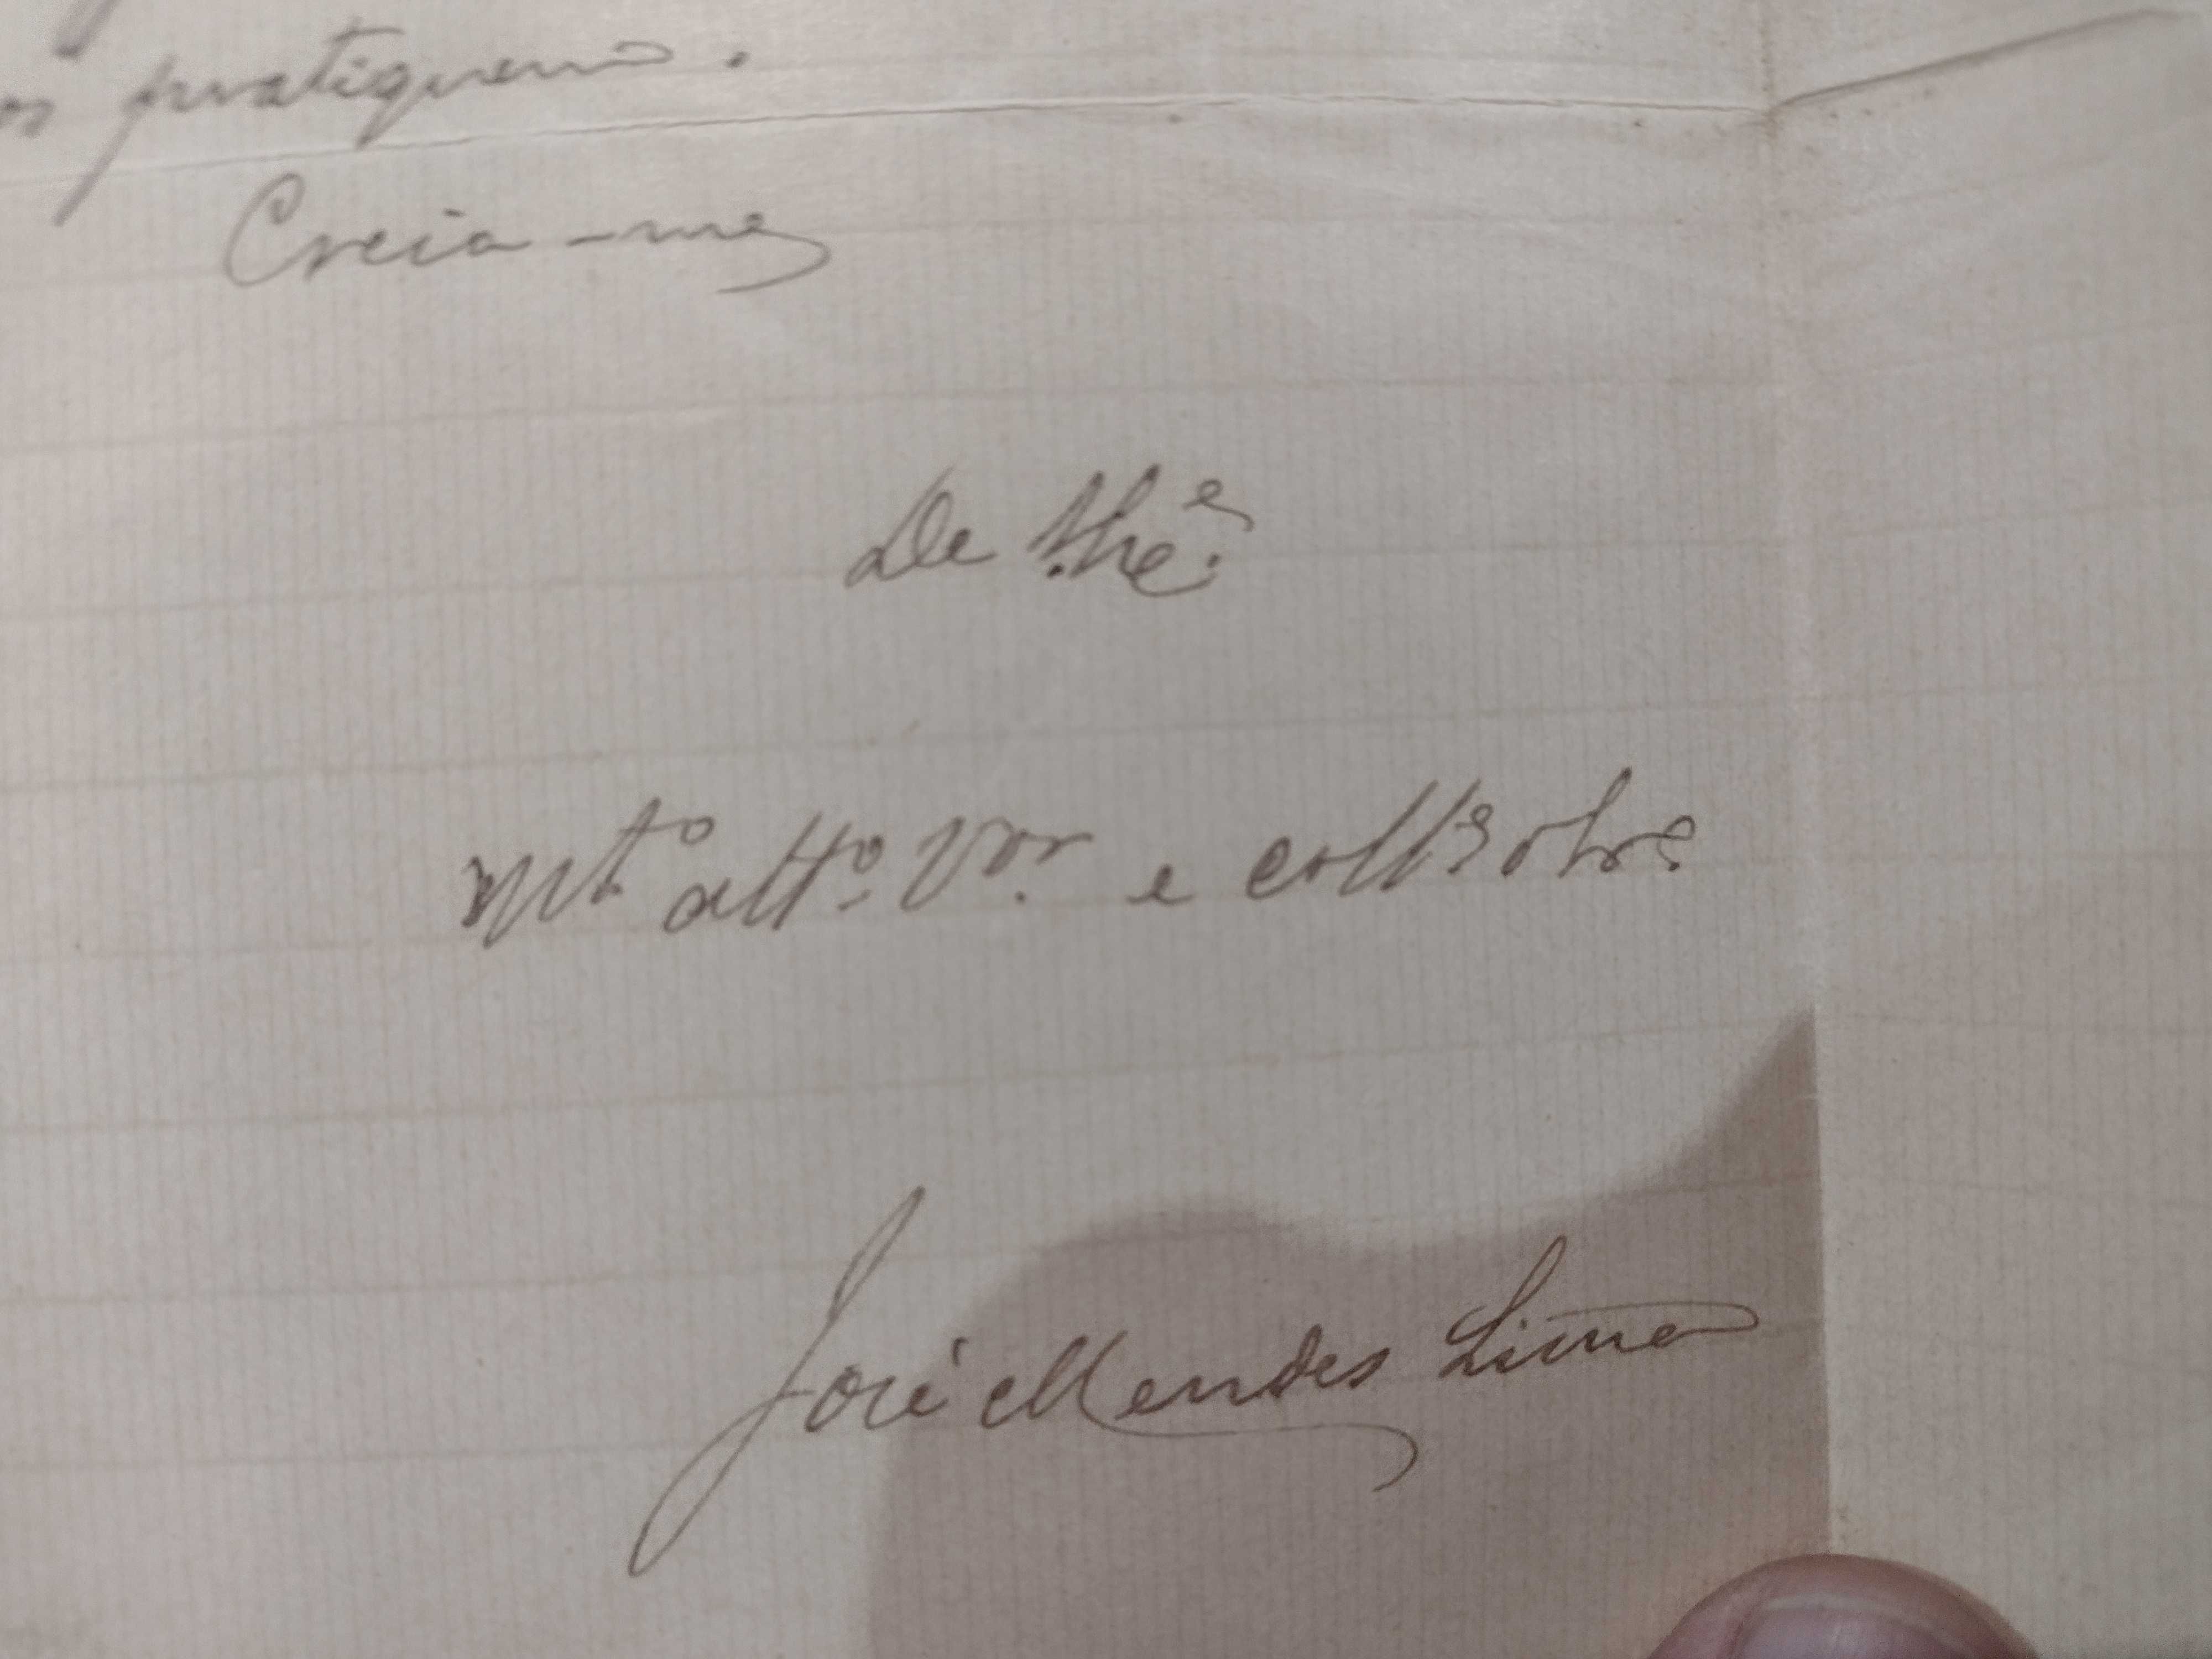 os pratiquem.
Creia-me
De
Mto atto. Vor. e collª obro
José Mendes Lima